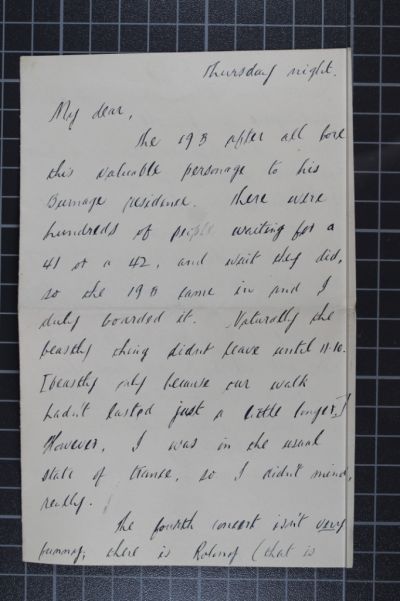 Thursday night.
My dear,
The 19B after all bore
this valuable personage to his
Burnage residence. There were
hundreds of people waiting for a
41 or a 42, and wait they did,
so the 19B came in and I
duly boarded it. Naturally the
beastly thing didnt leave until 11.10.
[beastly only because our walk
hadn't lasted just a little longer.]
However, I was in the usual
state of trance, so I didn't mind,
really.
The fourth concert isn't very
funny; there is (that is